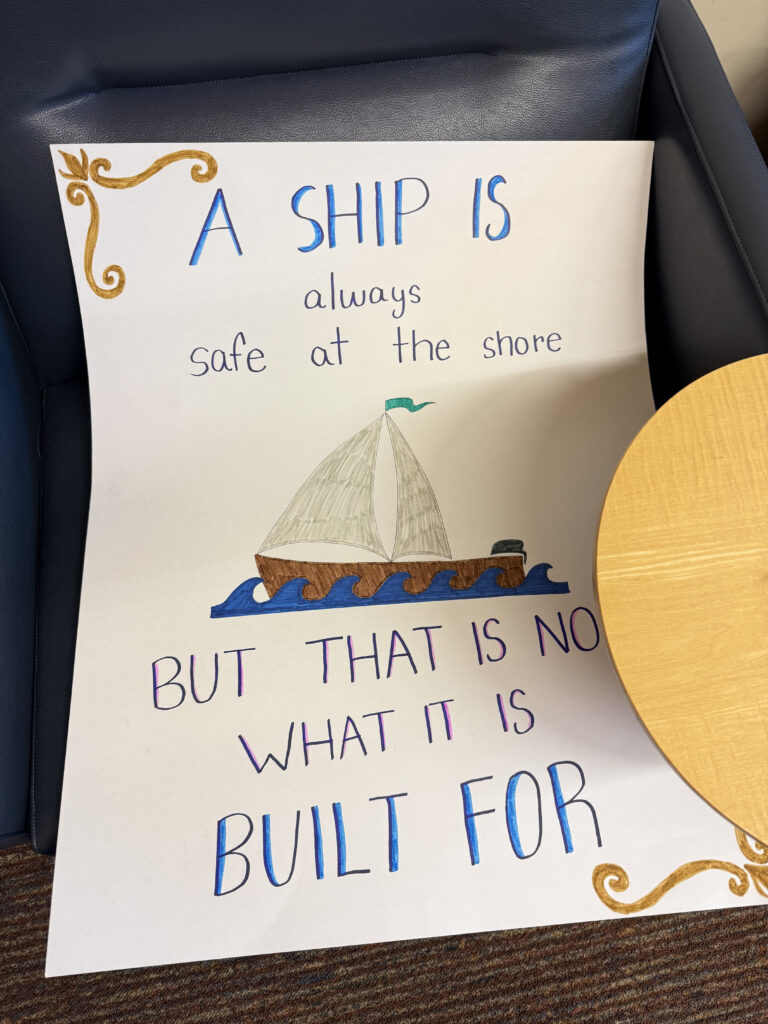 A SHIP IS
always
safe at the shore
BUT THAT IS NO
WHAT IT IS
BUILT FOR